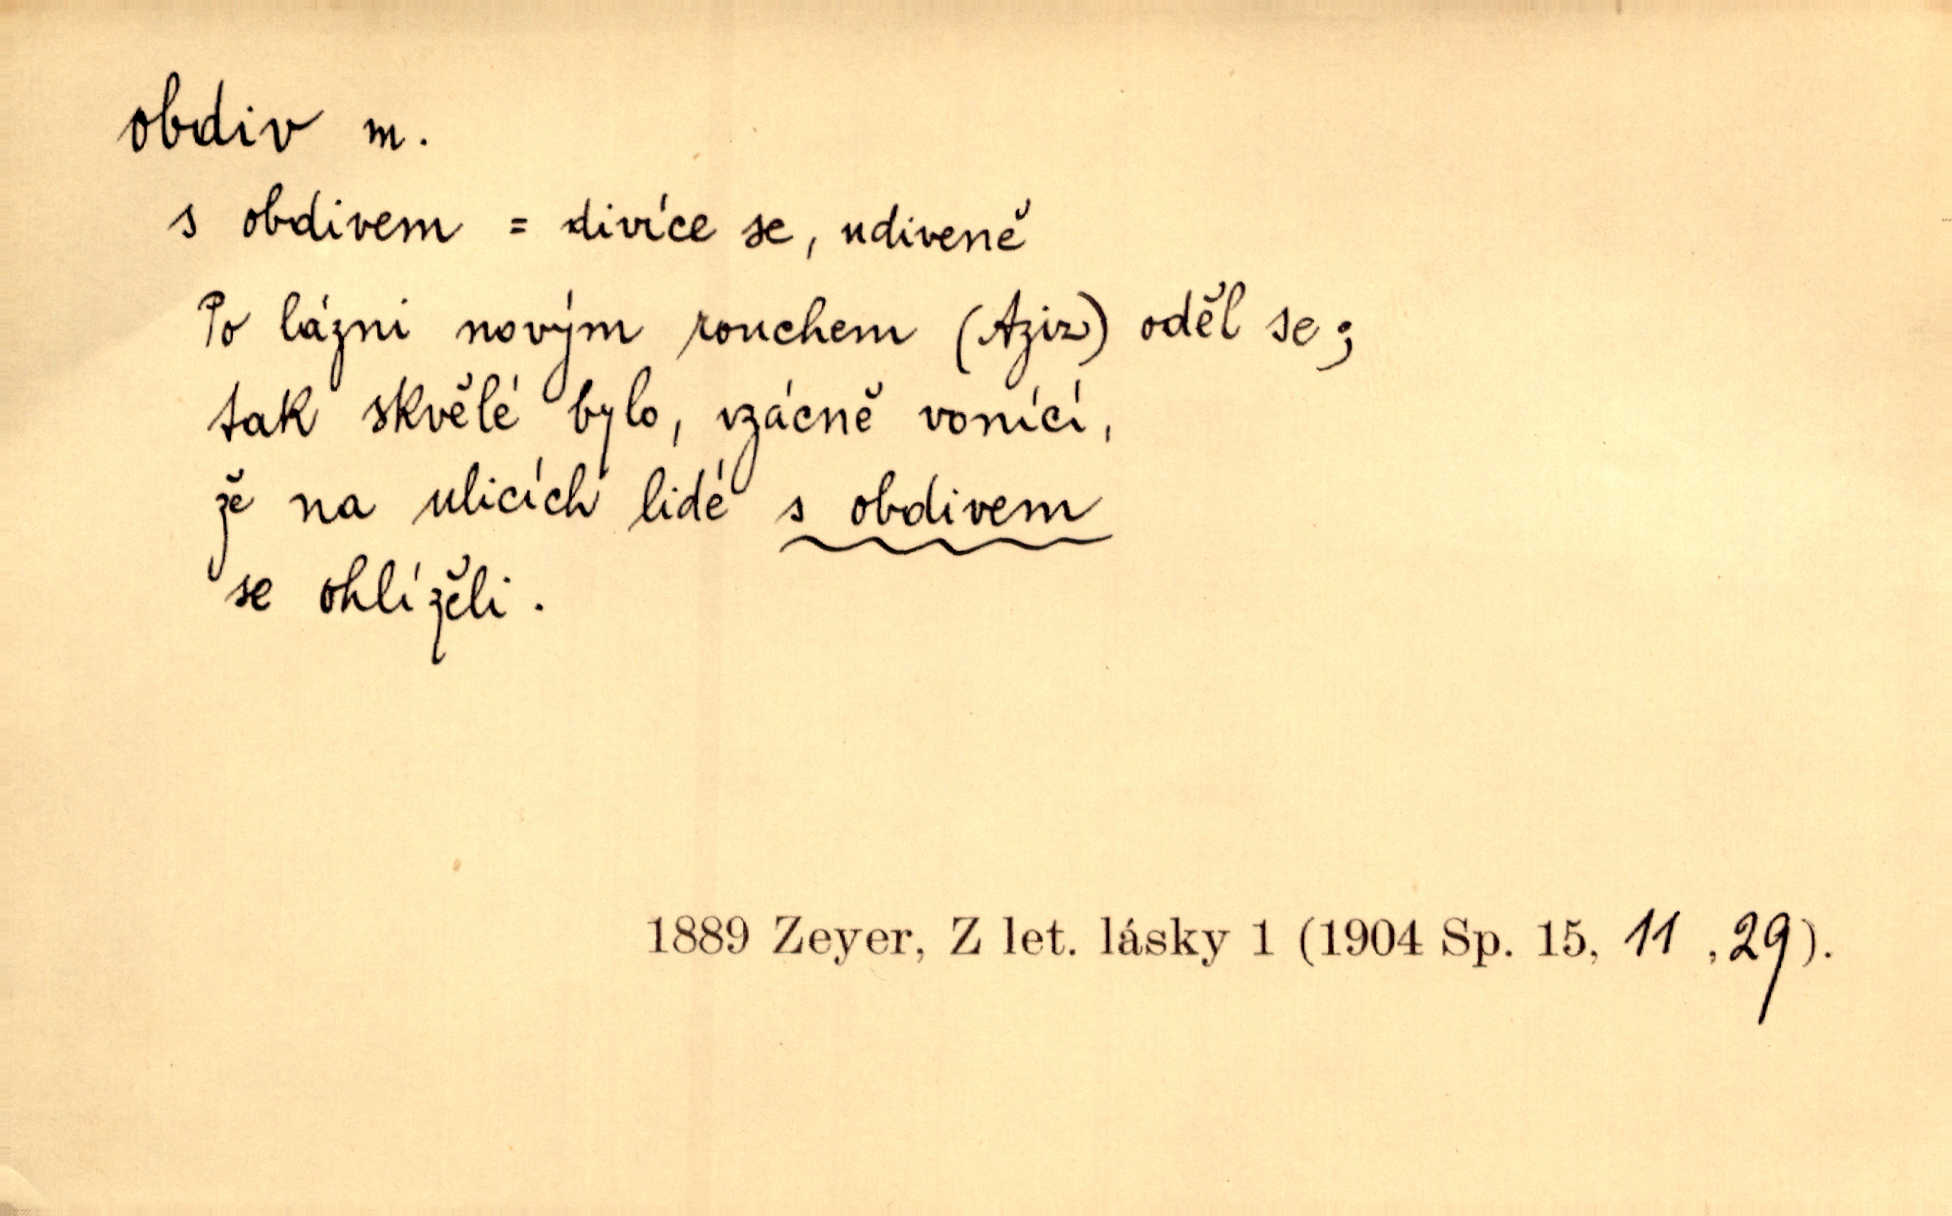 obdiv m.
s obdivem = divíce se, udiveně
Po lázni novým rouchem (Aziz) oděl se;
tak skvělé bylo, vzácně vonící,
že na ulicích lidé s obdivem
se ohlíželi.
1889 Zeyer, Z let. lásky 1 (1904 Sp. 15, 11 , 29).